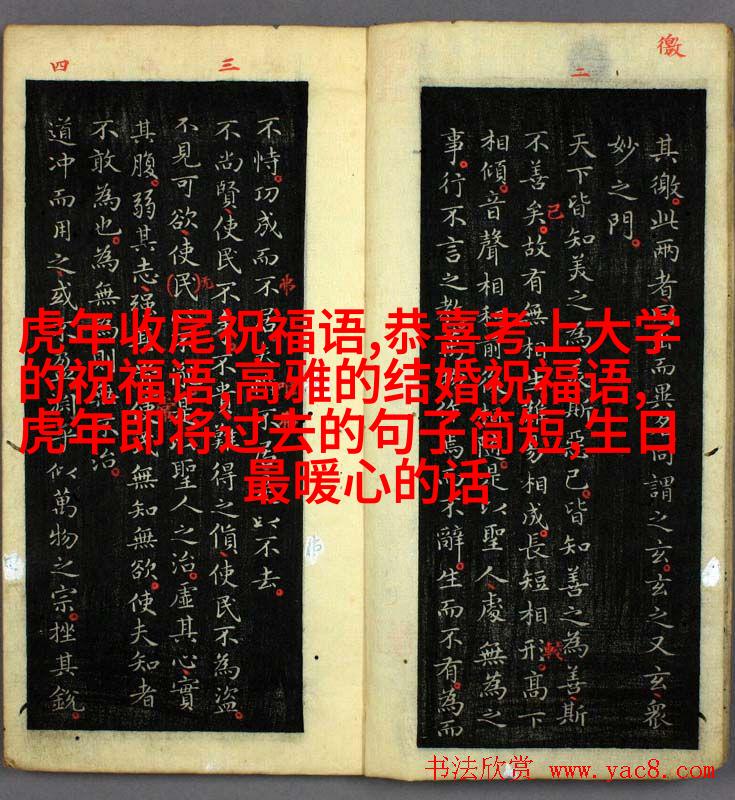 徼
二
其徼。此兩者出而異名同謂之玄。玄之又玄。眾
妙之門。
天下皆知美之為斯已。皆知善之為善斯
不善矣。故有無相難易相成。長短相形。高下
相傾。音聲相和前是以聖人處無為之
事。行不言之教焉而不辭。生而不有。為而
已
三
四
不恃。功成而不不以不去。
不尚賢使民不不貴難得之貨使民不為盜。
不見可欲使民是聖人之治。虛其心實
其腹。弱其志強其使民無知無欲。使夫知者
不敢為也。為無為則治。
道冲而用之或乎似萬物之宗。挫其銳。
虎年收尾祝福语,恭喜考上大学
的祝福语,高雅的结婚祝福语,
虎年即将过去的句子简短,生日
最暖心的话
书法欣赏 www.yac8.com